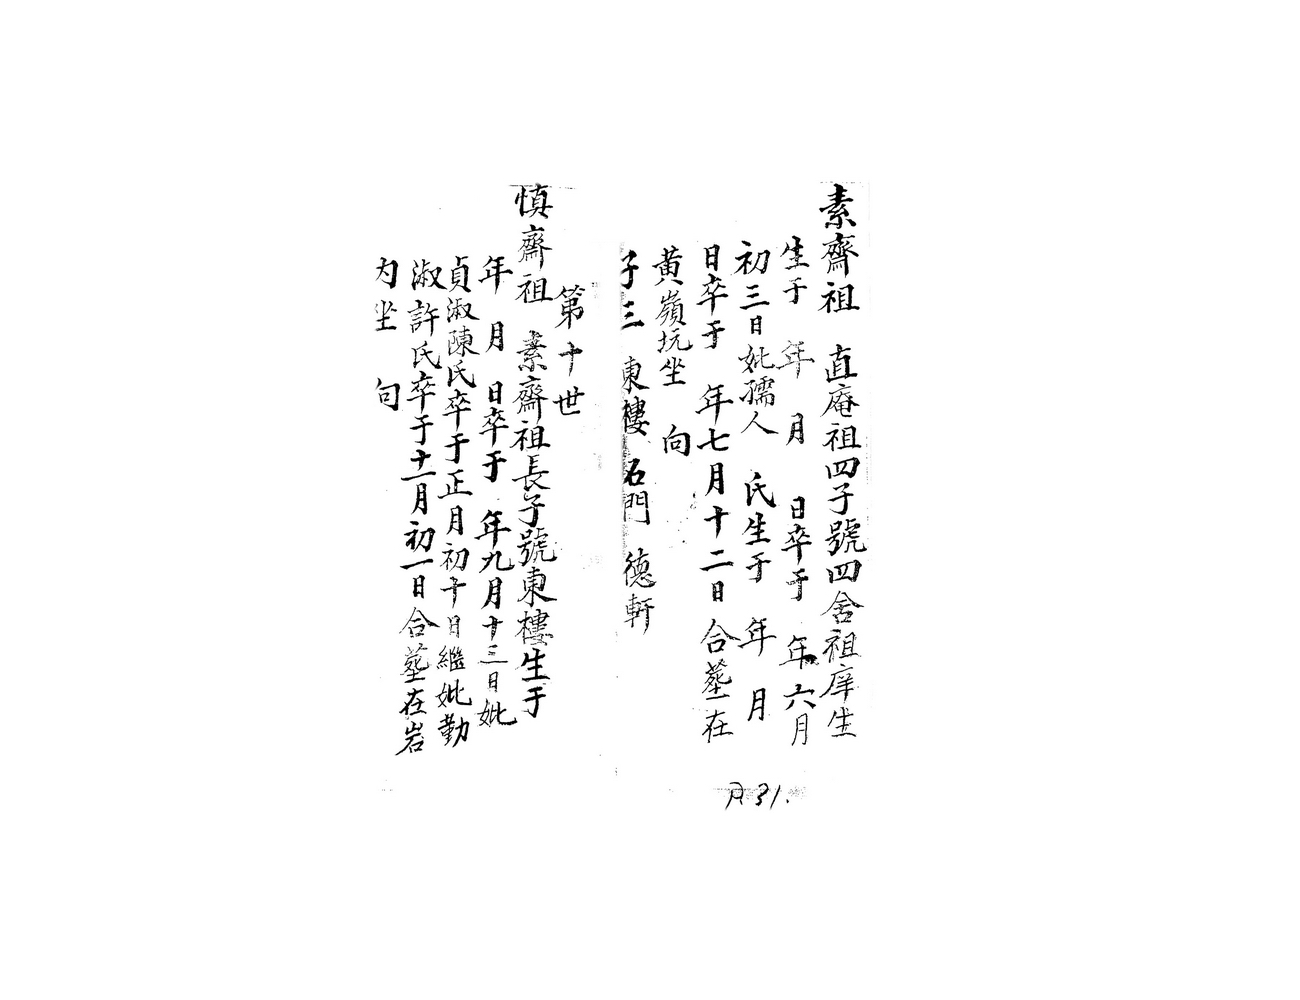 素齋祖 直庵祖四子號四舍祖庠生
生于 年 月 日卒于 年六月
初三日妣孺人 氏生于 年 月
日卒于 年七月十二日合塟在
黃嶺坑坐 向
子三 東樓 石門 德軒
第十世
慎齋祖 素齋祖長子號東樓生于
年 月 日卒于 年九月十三日妣
貞淑陳氏卒于正月初十日繼妣勤
淑許氏卒于十二月初一日合塟在岩
内坐 向
P.31.